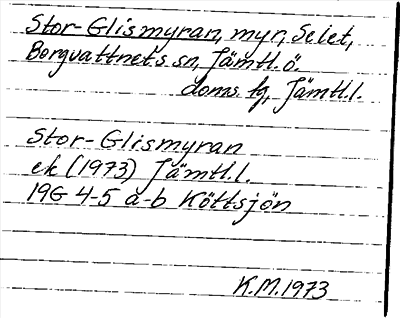 Stor-Glismyran, myr, Selet,
Borgvattnets sn, Jämtl. ö.
doms. fg, Jämtl. l.
Stor-Glismyran
ek (1973) Jämtl. l.
19G 4-5 a-b Köttsjön
K.M. 1973